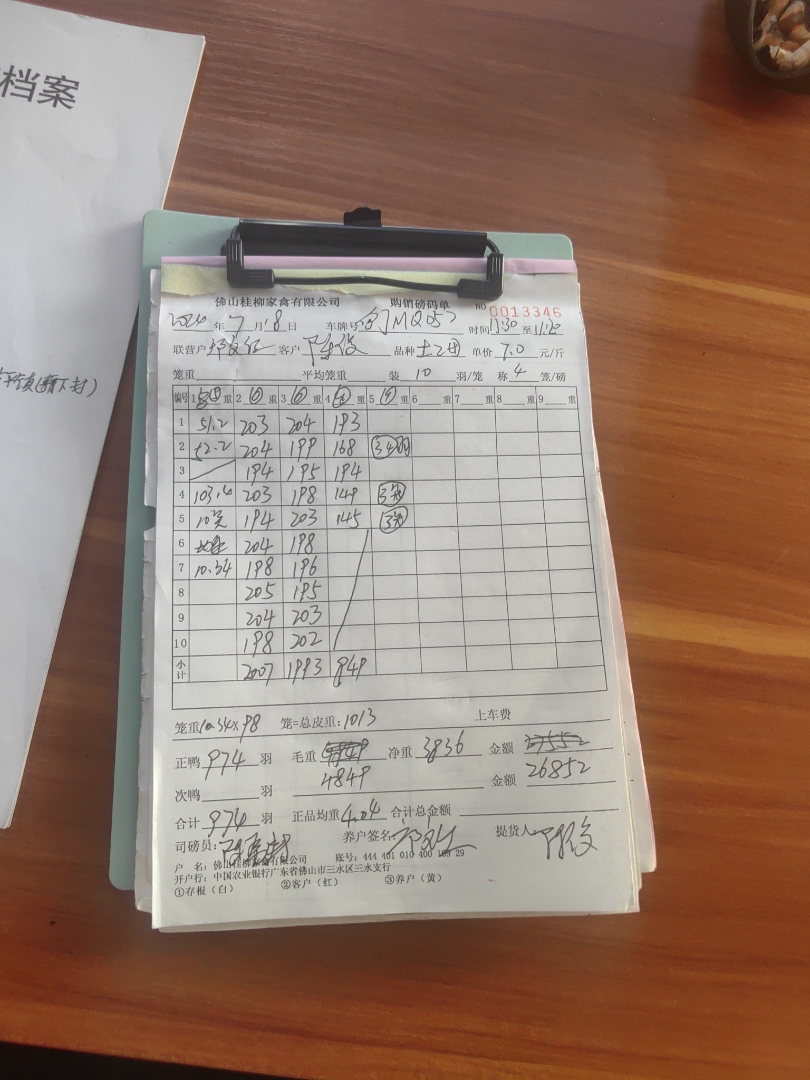 档案
佛山桂柳家禽有限公司 购销磅码单 NO 0013346
年7月18日 车牌号 MQ052 时间11:30至11:20
联营户 客户 陈俊 品种 土2 单价 7.0 元/斤
笼重 平均笼重 装 10 羽/笼 称 4 笼/磅
编号 1 重 2 重 3 重 4 重 5 重 6 重 7 重 8 重 9 重
1 51.2 203 204 193
2 52.2 204 199 168 34羽
3 194 195 194
4 103.4 203 198 149 3笼
5 10笼 194 203 145 3笼
6 204 198
7 10.34 198 196
8 205 195
9 204 203
10 198 202
小计 2007 1993 849
笼重10.34×98 笼=总皮重:1013 上车费
正鸭 974 羽 毛重 净重 3836 金额
4849 26852
次鸭 羽 金额
合计 974 羽 正品均重 4.04 合计总金额
司磅员: 养户签名: 提货人 陈俊
户 名:佛山桂柳家禽有限公司 账号:444 401 010 400 169 29
开户行:中国农业银行广东省佛山市三水区三水支行
①存根(白) ②客户(红) ③养户(黄)